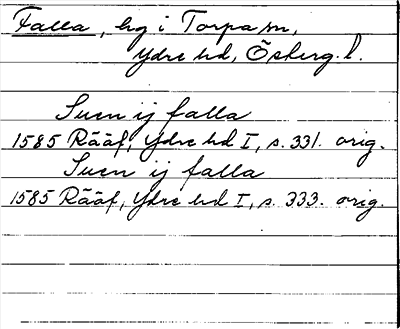 Falla, hg i Torpa sn,
Ydre hd, Östergl.
Suen ij falla
1585 Rääf, Ydre hd I, s. 331. orig.
Suen ij falla
1585 Rääf, Ydre hd I, s. 333. orig.